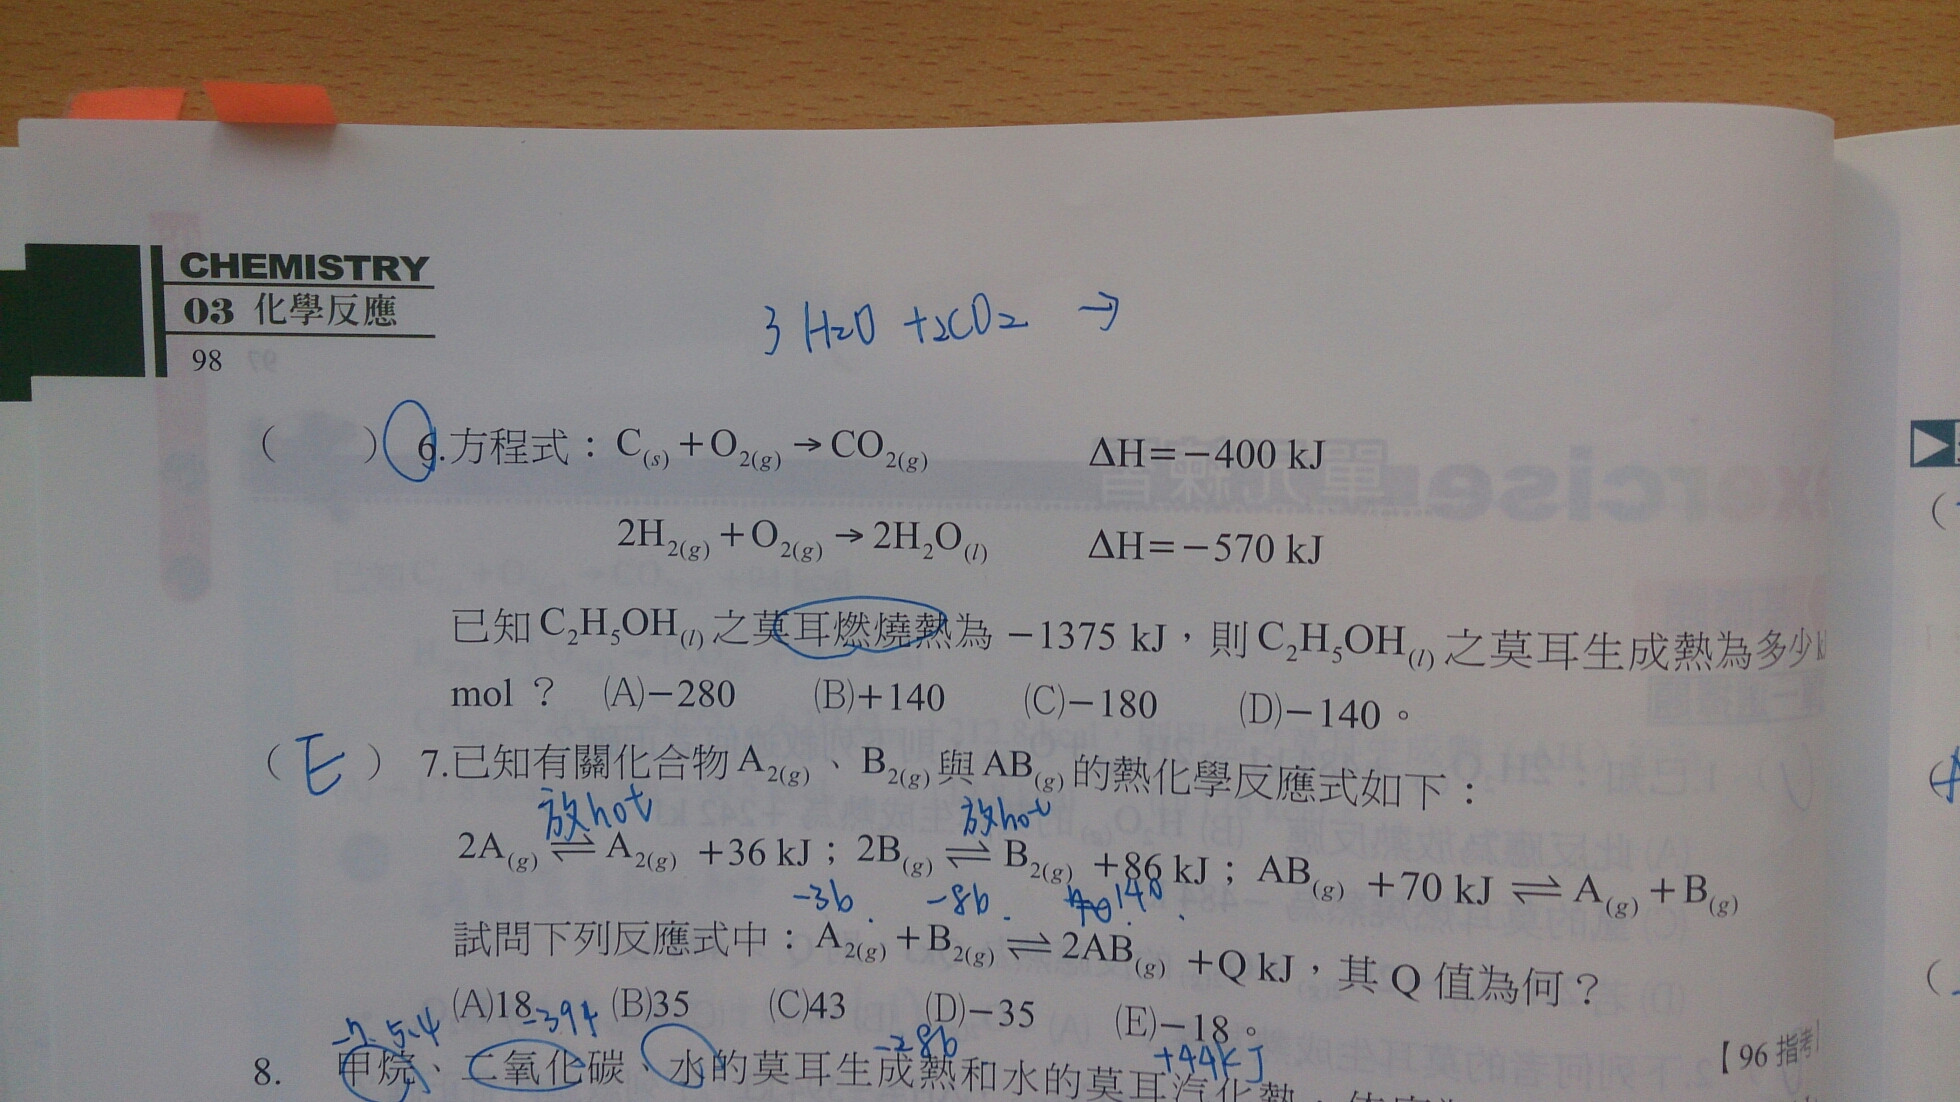 CHEMISTRY
03 化學反應
98
3 H2O + 2CO2 →
( ) 6.方程式：C(s)+O2(g)→CO2(g) ΔH=−400 kJ
2H2(g)+O2(g)→2H2O(l) ΔH=−570 kJ
已知C2H5OH(l)之莫耳燃燒熱為−1375 kJ，則C2H5OH(l)之莫耳生成熱為多少
mol？ (A)−280 (B)+140 (C)−180 (D)−140。
( E ) 7.已知有關化合物A2(g)、B2(g)與AB(g)的熱化學反應式如下：
放hot 放hot
2A(g)⇌A2(g)+36 kJ；2B(g)⇌B2(g)+86 kJ；AB(g)+70 kJ⇌A(g)+B(g)
-36 -86 140
試問下列反應式中：A2(g)+B2(g)⇌2AB(g)+Q kJ，其Q值為何？
(A)18 (B)35 (C)43 (D)−35 (E)−18。
【96 指考
-394 -286 +44kJ
8. 甲烷、二氧化碳、水的莫耳生成熱和水的莫耳汽化熱，